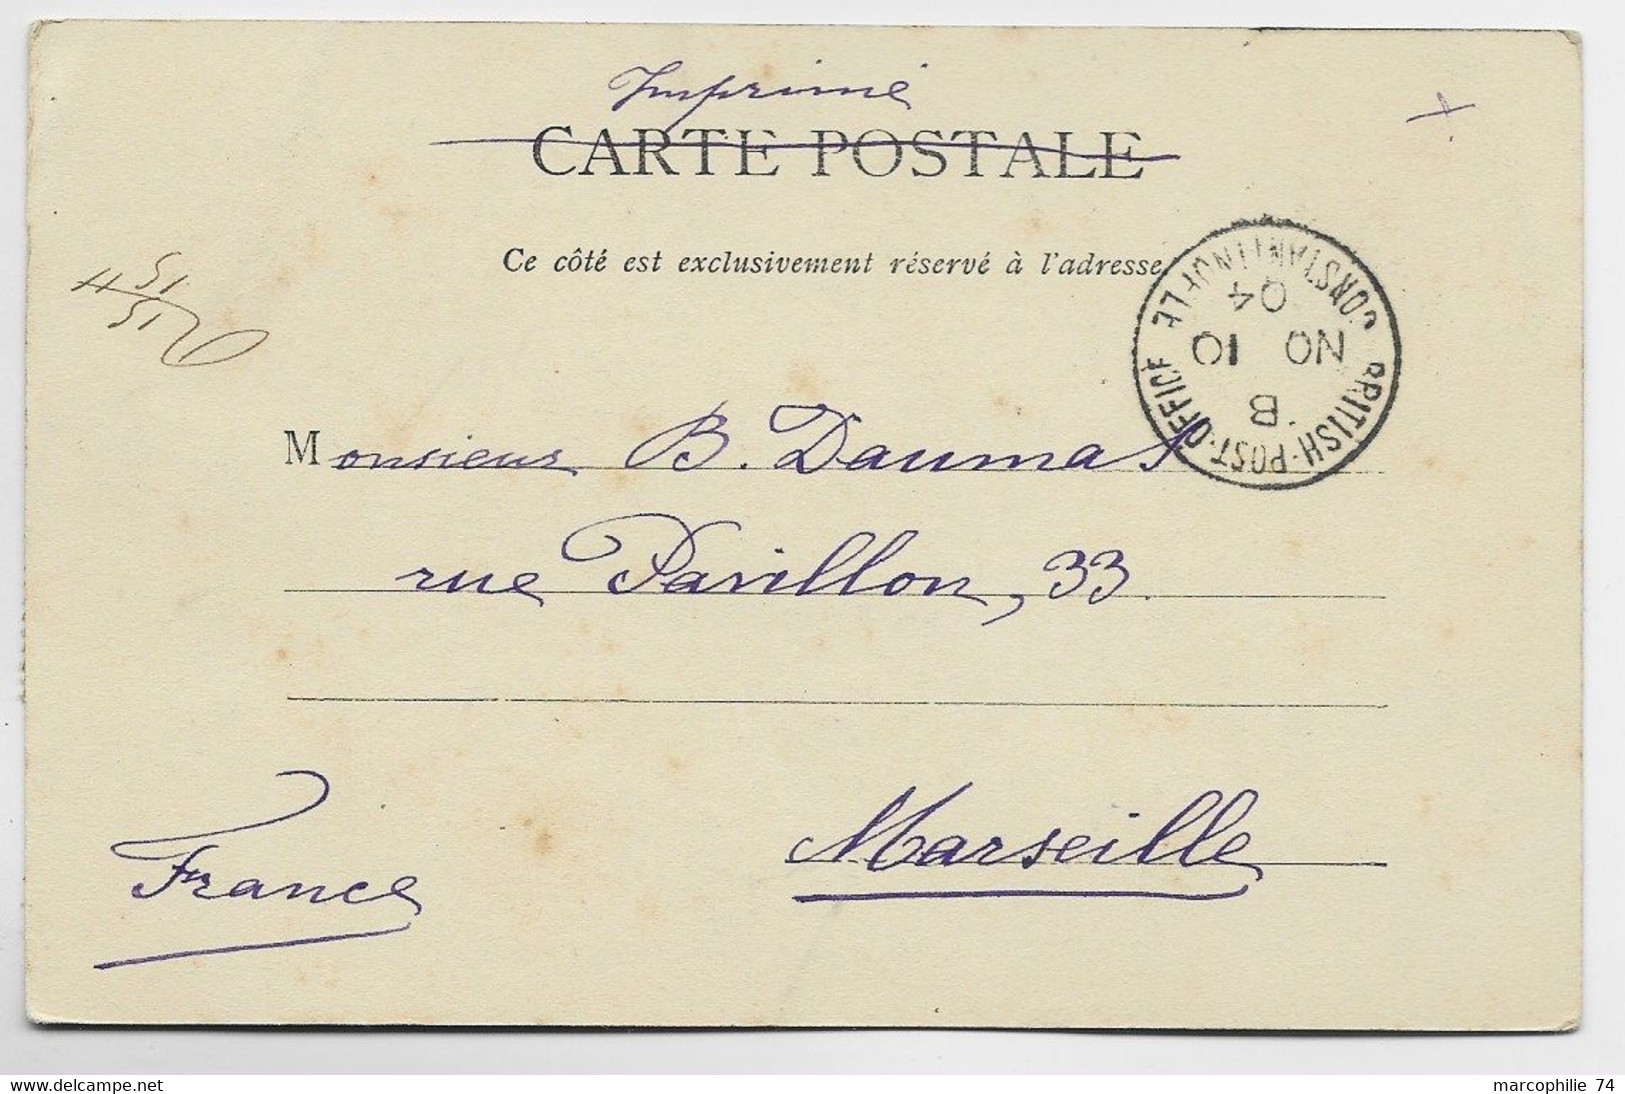 Imprimé
CARTE POSTALE
Ce côté est exclusivement réservé à l'adresse
BRITISH·POST·OFFICE
CONSTANTINOPLE
B
NO 10
04
51
Monsieur B. Daumas
rue Pavillon, 33.
Marseille
France
www.delcampe.net
marcophilie 74